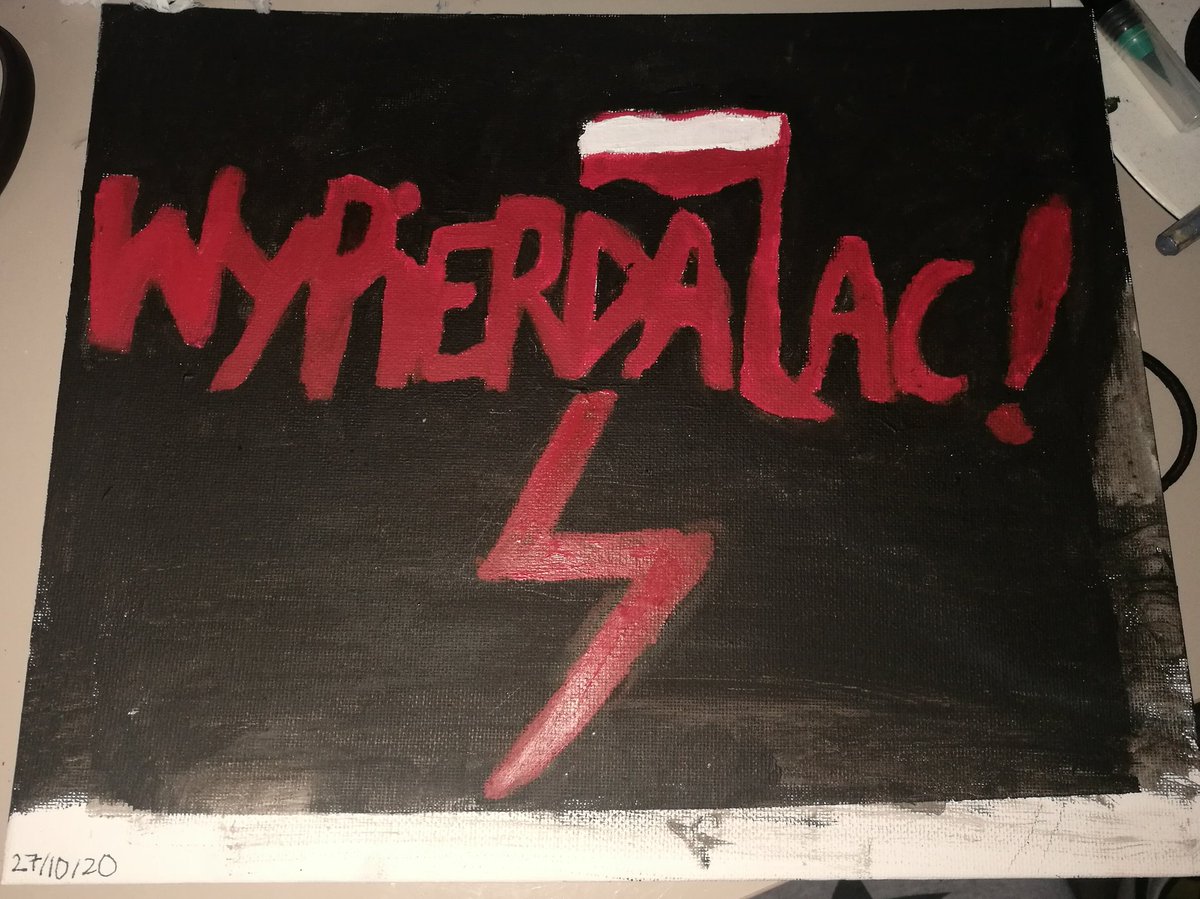 WYPiERDALAC!
27/10/20